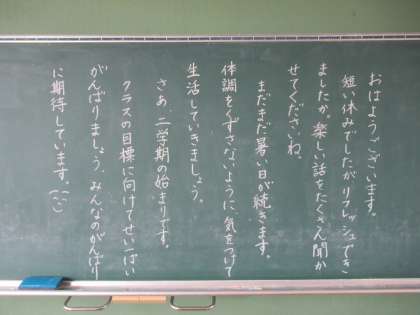 おはようございます。
短い休みでしたがリフレッシュでき
ましたか。楽しい話をたくさん聞か
せてくださいね。
まだまだ暑い日が続きます。
体調をくずさないように気をつけて
生活していきましょう。
さあ、二学期の始まりです。
クラスの目標に向けてせいいっぱい
がんばりましょう。みんなのがんばり
に期待しています。(^^)